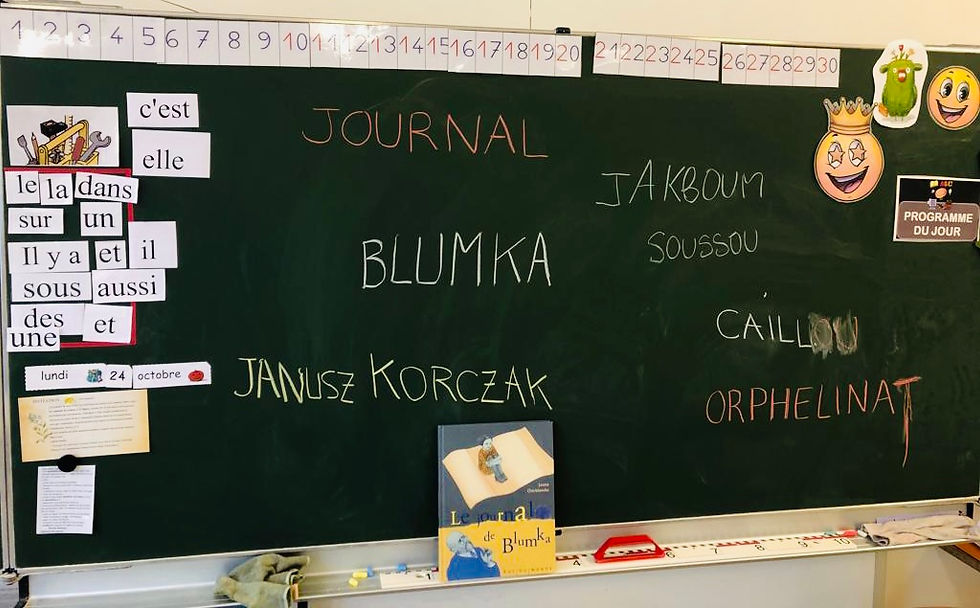 1 2 3 4 5 6 7 8 9 10 11 12 13 14 15 16 17 18 19 20 21 22 23 24 25 26 27 28 29 30
c'est
elle
le la dans
sur un
Il y a et il
sous aussi
des et
une
lundi 24 octobre
INVITATION
JOURNAL
BLUMKA
JANUSZ KORCZAK
JAKBOUM
SOUSSOU
CAILLOU
ORPHELINAT
PROGRAMME
DU JOUR
Iwona
Chmielewska
Le journal
de Blumka
1 4 6 7 8 9 10